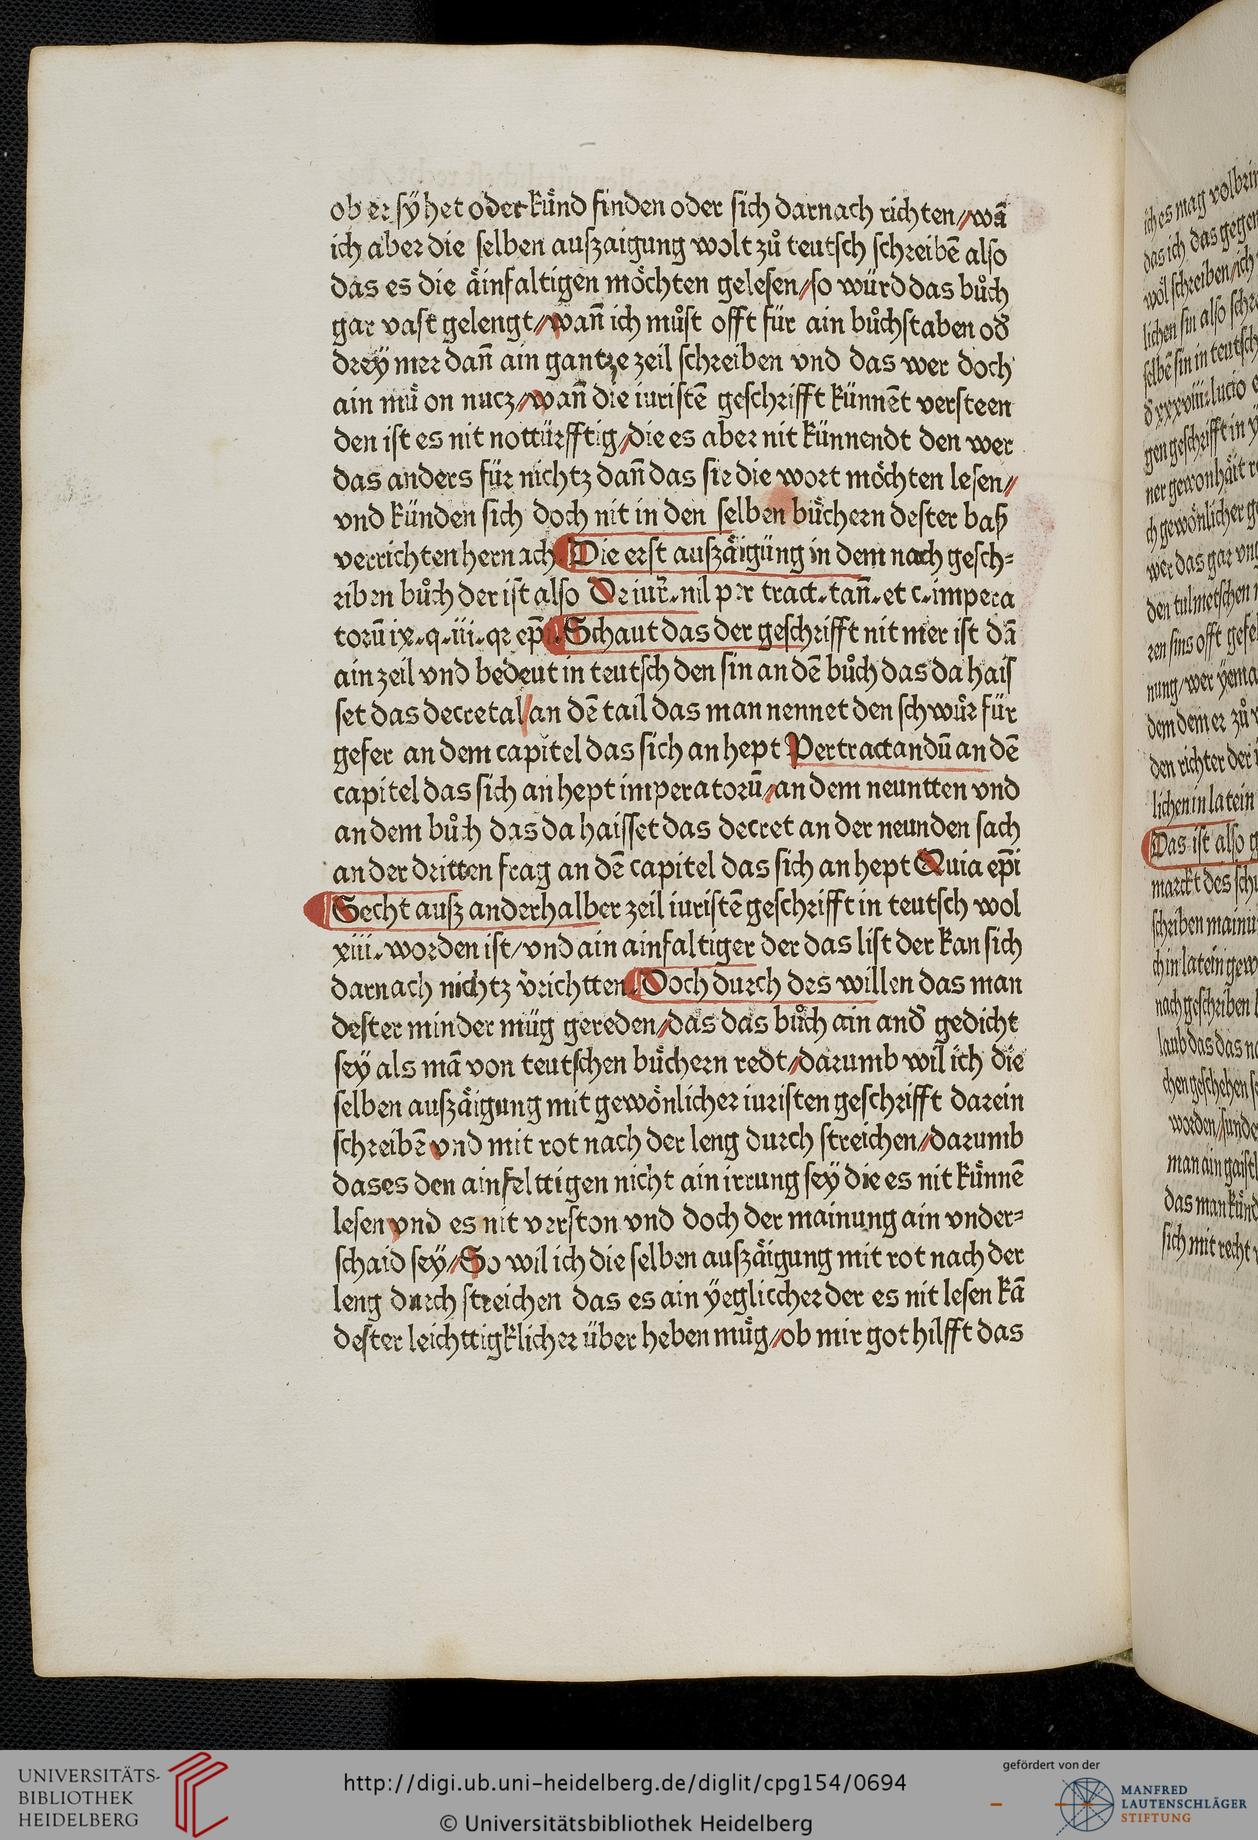 ob er syhet oder kůnd finden oder sich darnach richten // wā
ich aber die selben auszaigung wolt zů teutsch schreibē also
das es die ainfaltigen möchten gelesen / so würd das bůch
gar vast gelengt // wañ ich můst offt für ain bůchstaben od
drey mer dañ ain gantze zeil schreiben vnd das wer doch
ain mü on nucz // wañ die iuristē geschrifft künnēt versteen
den ist es nit nottürfftig / die es aber nit künnendt den wer
das anders für nichtz dañ das sie die wort möchten lesen //
vnd künden sich doch nit in den selben bůchern dester baß
verrichten hernach Die erst auszäigüng in dem nach gesch=
riben bůch der ist also De iur̄. nil per tract. tañ. et c. impera
torū ix. q. iii. qr ep̄i Schaut das der geschrifft nit mer ist dā
ain zeil vnd bedeut in teutsch den sin an dē bůch das da hais
set das decretal / an dē tail das man nennet den schwůr für
gefer an dem capitel das sich an hept Pertractandū an dē
capitel das sich an hept imperatorū / an dem neuntten vnd
an dem bůch das da haisset das decret an der neunden sach
an der dritten frag an dē capitel das sich an hept Quia ep̄i
Secht ausz anderhalber zeil iuristē geschrifft in teutsch wol
xiii. worden ist / vnd ain ainfaltiger der das list der kan sich
darnach nichtz v̄richtten Doch durch des willen das man
dester minder müg gereden / das das bůch ain and̄ gedicht
sey als mā von teutschen bůchern redt // darumb wil ich die
selben auszäigung mit gewönlicher iuristen geschrifft darein
schreibē vnd mit rot nach der leng durch streichen // darumb
das es den ainfelttigen nicht ain irrung sey die es nit künnē
lesen vnd es nit verston vnd doch der mainung ain vnder=
schaid sey // So wil ich die selben auszäigung mit rot nach der
leng durch streichen das es ain yegliccher der es nit lesen kā
dester leichttigklicher über heben můg // ob mir got hilfft das
ich es mag volbrin
das ich das gegen
wol schreiben / ich
lichen sin also schr
selbē sin in teutsch
gen geschrifft in
ner gewonhäit
ch gewönlicher
wer das gar vn
den tulmetschen
ren sins offt gese
nung / wer yema
dem dem er zů
den richter der
lichen in latein
Das ist also g
marckt des sch
schriben mainu
ch in latein gew
nach geschriben
laub das das n
chen geschehen
worden / sunde
man ain gaistl
das man künd
sich mit recht
UNIVERSITÄTS-
BIBLIOTHEK
HEIDELBERG
http://digi.ub.uni-heidelberg.de/diglit/cpg154/0694
© Universitätsbibliothek Heidelberg
gefördert von der
MANFRED
LAUTENSCHLÄGER
STIFTUNG